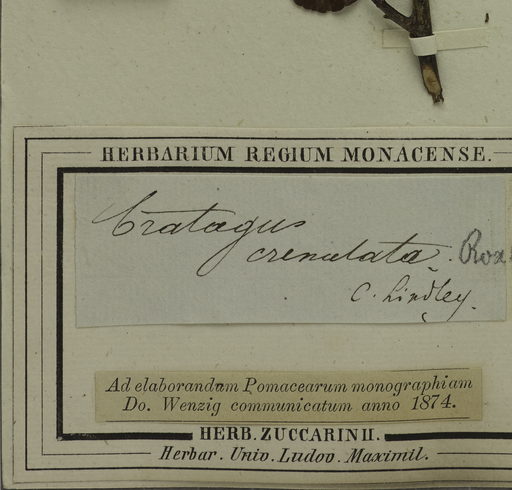 HERBARIUM REGIUM MONACENSE.
Cratægus
crenulata. Rox
C. Lindley.
Ad elaborandum Pomacearum monographiam
Do. Wenzig communicatum anno 1874.
HERB. ZUCCARINII.
Herbar. Univ. Ludov. Maximil.